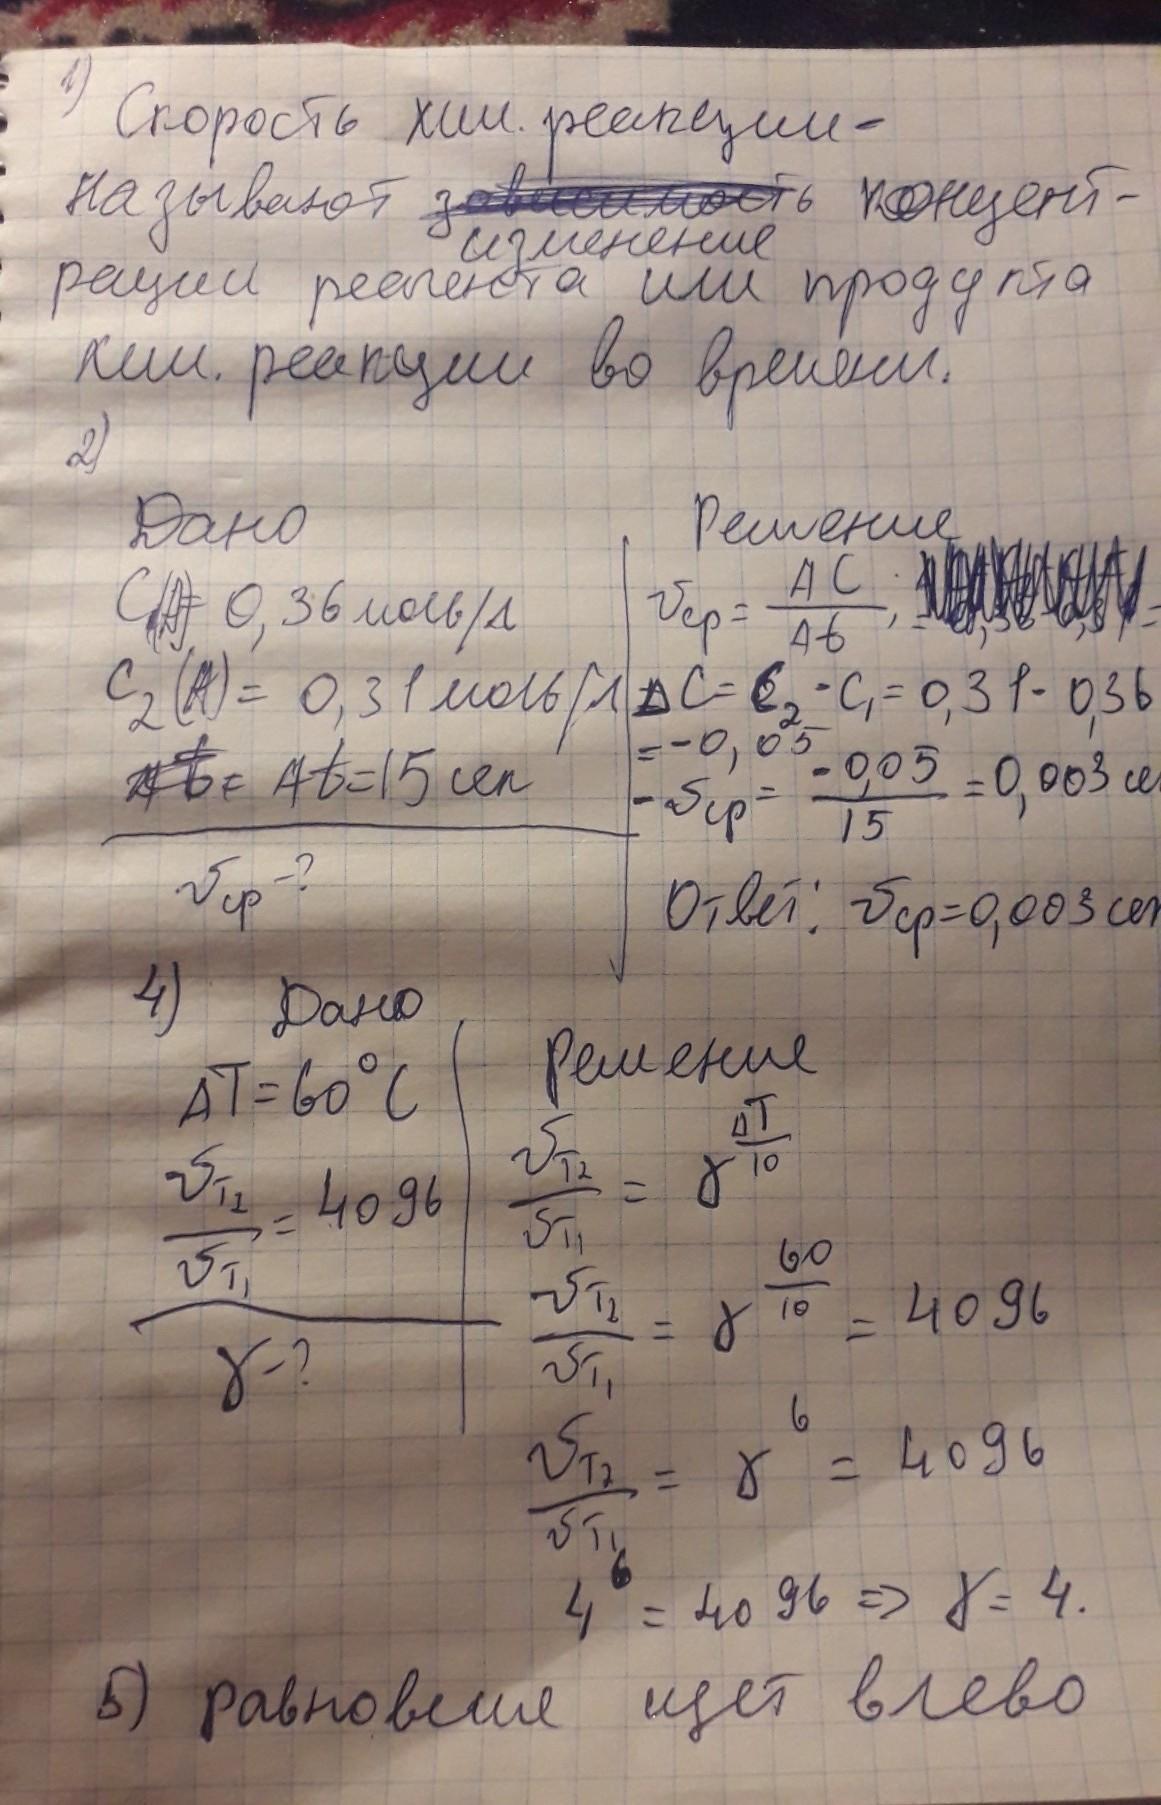 1)
Скорость хим. реакции-
называют зависимость концент-
изменение
рации реагента или продукта
хим. реакции во времени.
2)
Дано
C(A)= 0,36 моль/л
C2(A)= 0,31 моль/л
Δt= Δt=15 сек
υср-?
Решение
υср= ΔC/Δt ;
ΔC= C2-C1= 0,31-0,36
=-0,05
-υср= -0,05/15 =0,003 се
Ответ: υср=0,003 сек
4) Дано
ΔT=60°C
υT2/υT1 = 4096
γ-?
Решение
υT2/υT1 = γ^(ΔT/10)
υT2/υT1 = γ^(60/10) = 4096
υT2/υT1 = γ^6 = 4096
4^6 = 4096 => γ= 4.
5) равновесие идет влево